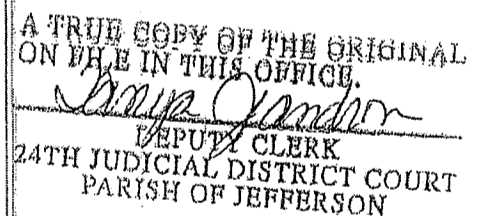 A TRUE COPY OF THE ORIGINAL
ON FILE IN THIS OFFICE.
DEPUTY CLERK
24TH JUDICIAL DISTRICT COURT
PARISH OF JEFFERSON